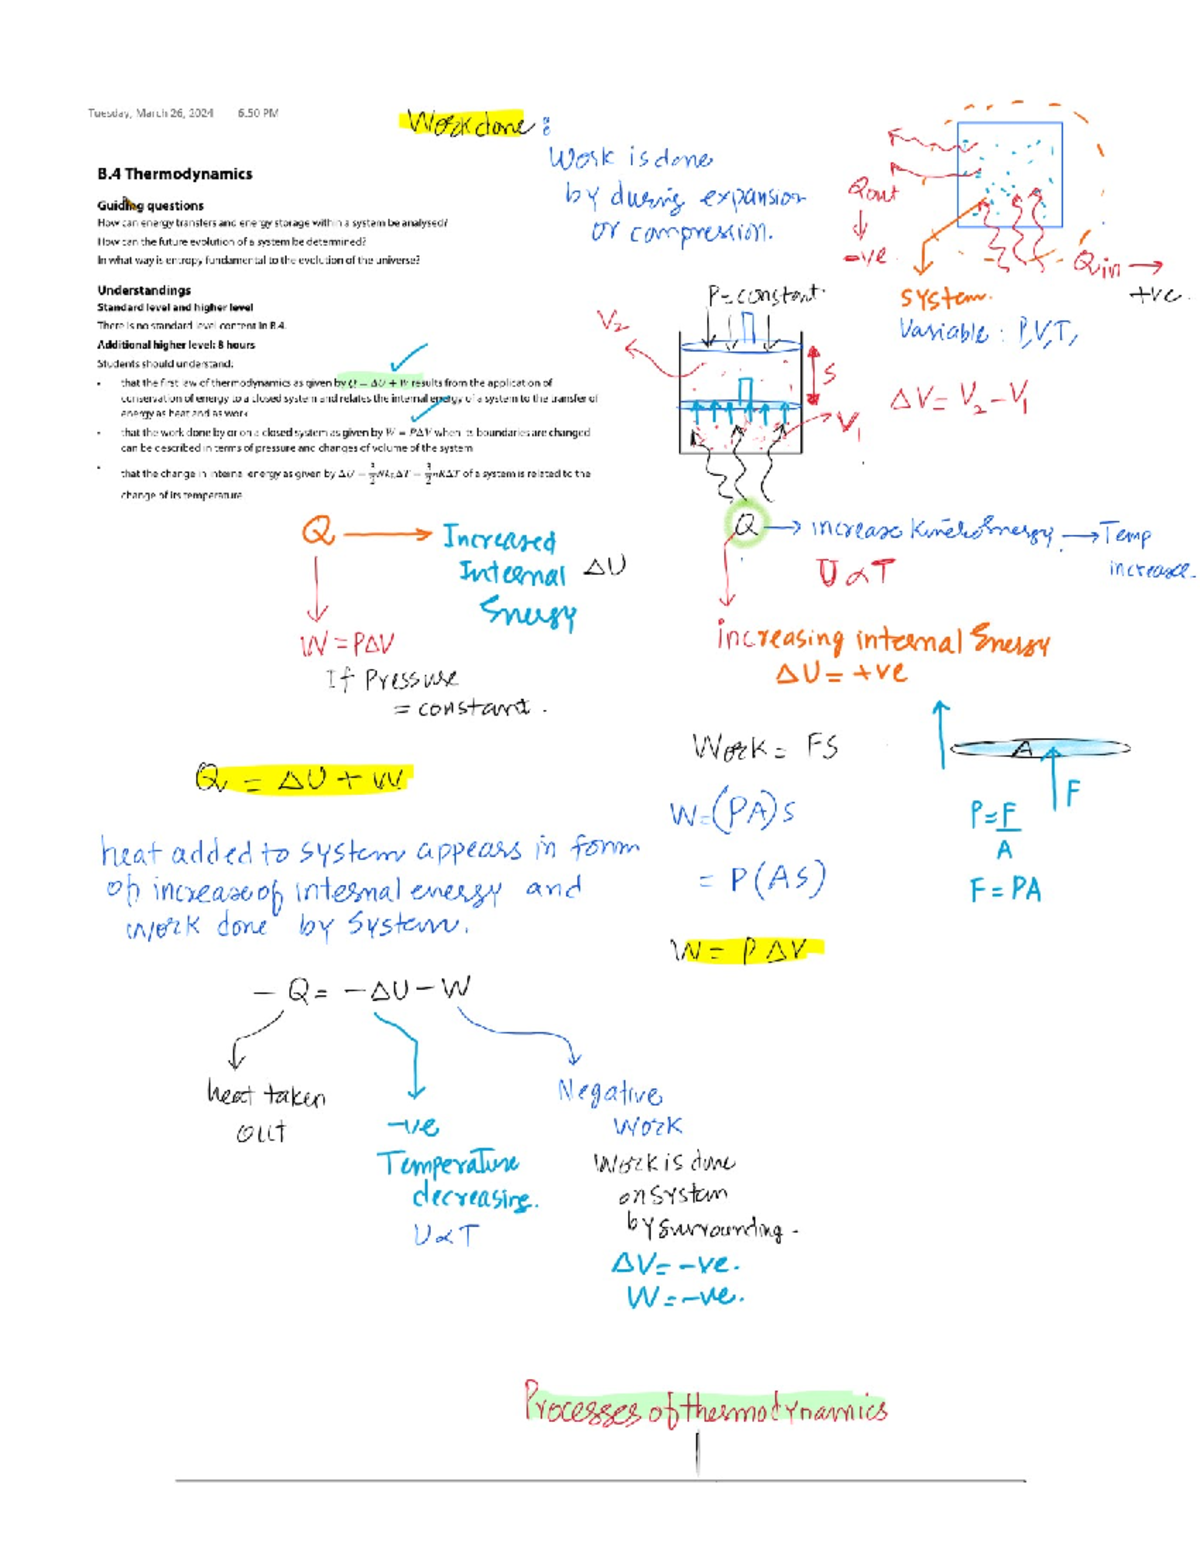 Tuesday, March 26, 2024 6:50 PM
Work done :
Work is done
by during expansion
or compression.
Qout
-ve
Qin →
+ve
System.
Variable : P,V,T,
ΔV = V₂ - V₁
B.4 Thermodynamics
Guiding questions
How can energy transfers and energy storage within a system be analysed?
How can the future evolution of a system be determined?
In what way is entropy fundamental to the evolution of the universe?
Understandings
Standard level and higher level
There is no standard level content in B.4.
Additional higher level: 8 hours
Students should understand:
• that the first law of thermodynamics as given by Q = ΔU + W results from the application of
conservation of energy to a closed system and relates the internal energy of a system to the transfer of
energy as heat and as work
• that the work done by or on a closed system as given by W = PΔV when its boundaries are changed
can be described in terms of pressure and changes of volume of the system
• that the change in internal energy as given by ΔU = 3/2 NkBΔT = 3/2 nRΔT of a system is related to the
change of its temperature
P=constant.
V₂
S
V₁
Q → increase Kinetic Energy → Temp
increase.
U ∝ T
increasing internal Energy
ΔU = +ve
Q → Increased
Internal ΔU
Energy
W = PΔV
If Pressure
= constant.
Q = ΔU + W
heat added to system appears in form
of increase of internal energy and
work done by system.
Work = FS
W=(PA)S
= P(AS)
W = PΔV
A
F
P=F/A
F = PA
- Q = -ΔU - W
heat taken
out
-ve
Temperature
decreasing.
U ∝ T
Negative
work
Work is done
on system
by surrounding.
ΔV = -ve.
W = -ve.
Processes of thermodynamics